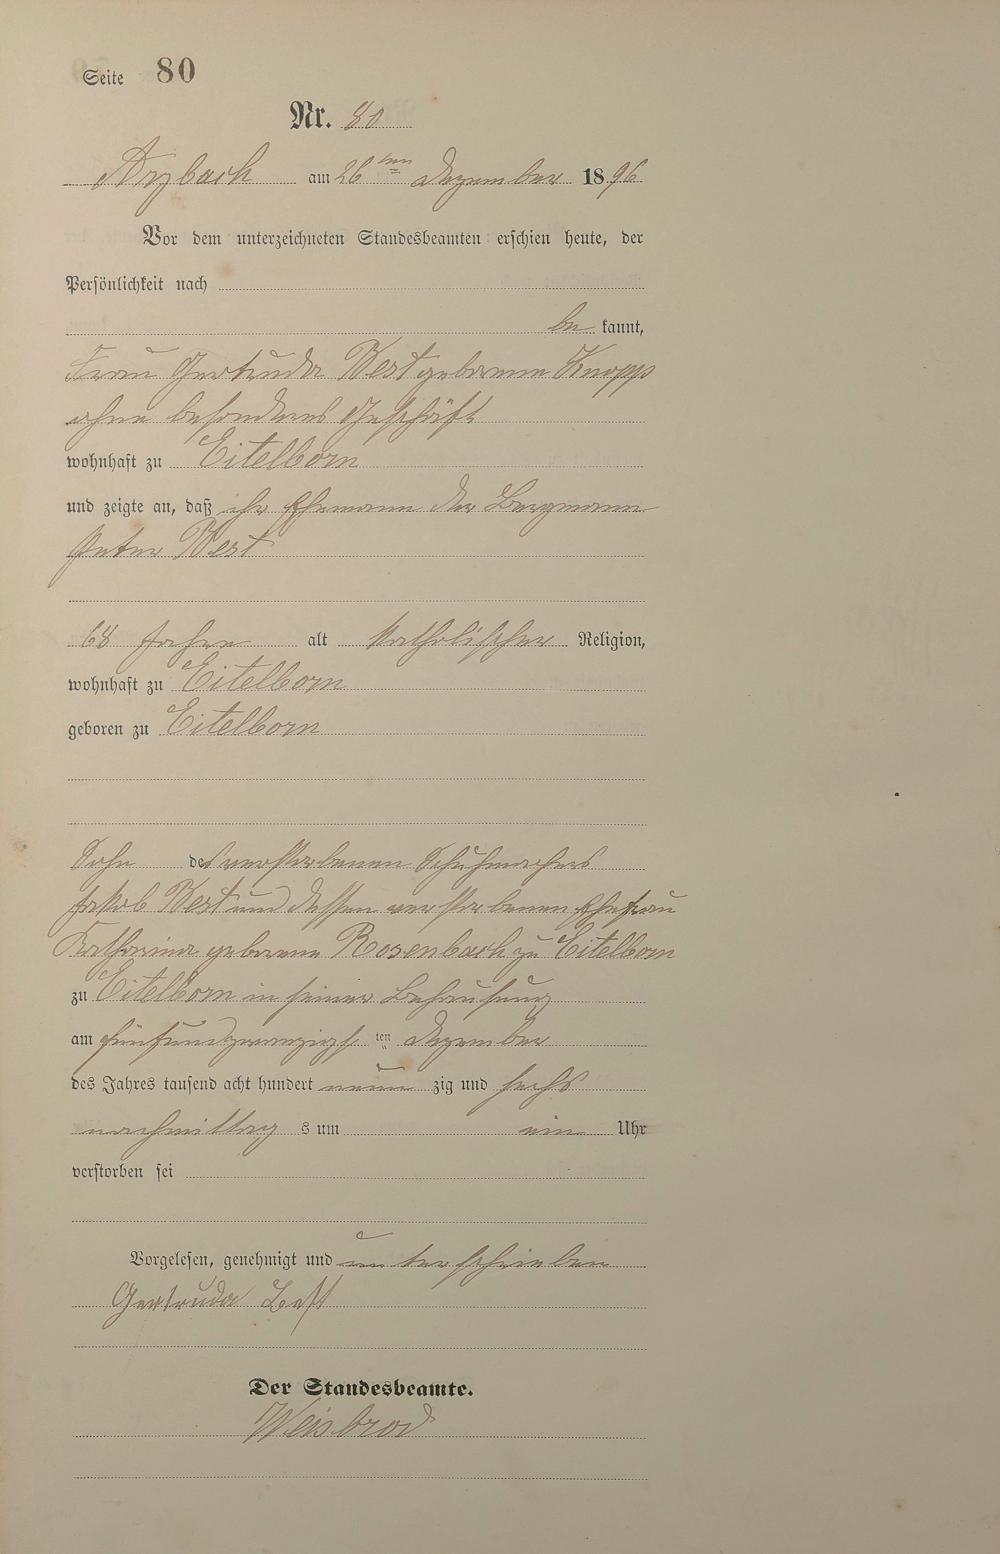 Seite 80
Nr. 80
Arzbach am 26ten Dezember 1896
Vor dem unterzeichneten Standesbeamten erschien heute, der
Persönlichkeit nach
be kannt,
Frau Gertruda Best geborene Knopp
ohne besonderes Geschäft
wohnhaft zu Eitelborn
und zeigte an, daß ihr Ehemann der Bergmann
Peter Best
68 Jahre alt katholischer Religion,
wohnhaft zu Eitelborn
geboren zu Eitelborn
Sohn des verstorbenen Schuhmachers
Jakob Best und dessen verstorbenen Ehefrau
Katharina geborene Rosenbach zu Eitelborn
zu Eitelborn in seiner Behausung
am fünfundzwanzigsten Dezember
des Jahres tausend acht hundert neun zig und sechs
nachmittag s um ein Uhr
verstorben sei
Vorgelesen, genehmigt und unterschrieben
Gertruda Best
Der Standesbeamte.
Weisbrod